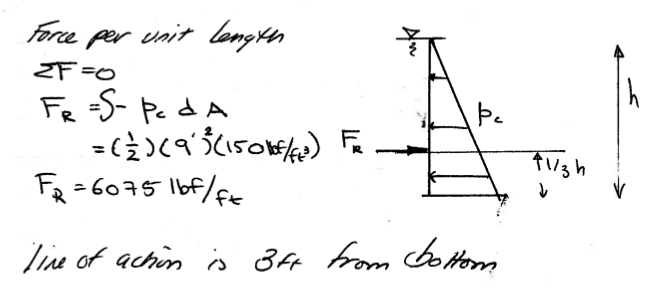 Force per unit length
ΣF=0
F_R = ∫- p_c d A
= (1/2)(9')²(150 lbf/ft³)
F_R = 6075 lbf/ft
F_R
p_c
1/3 h
h
line of action is 3ft from bottom